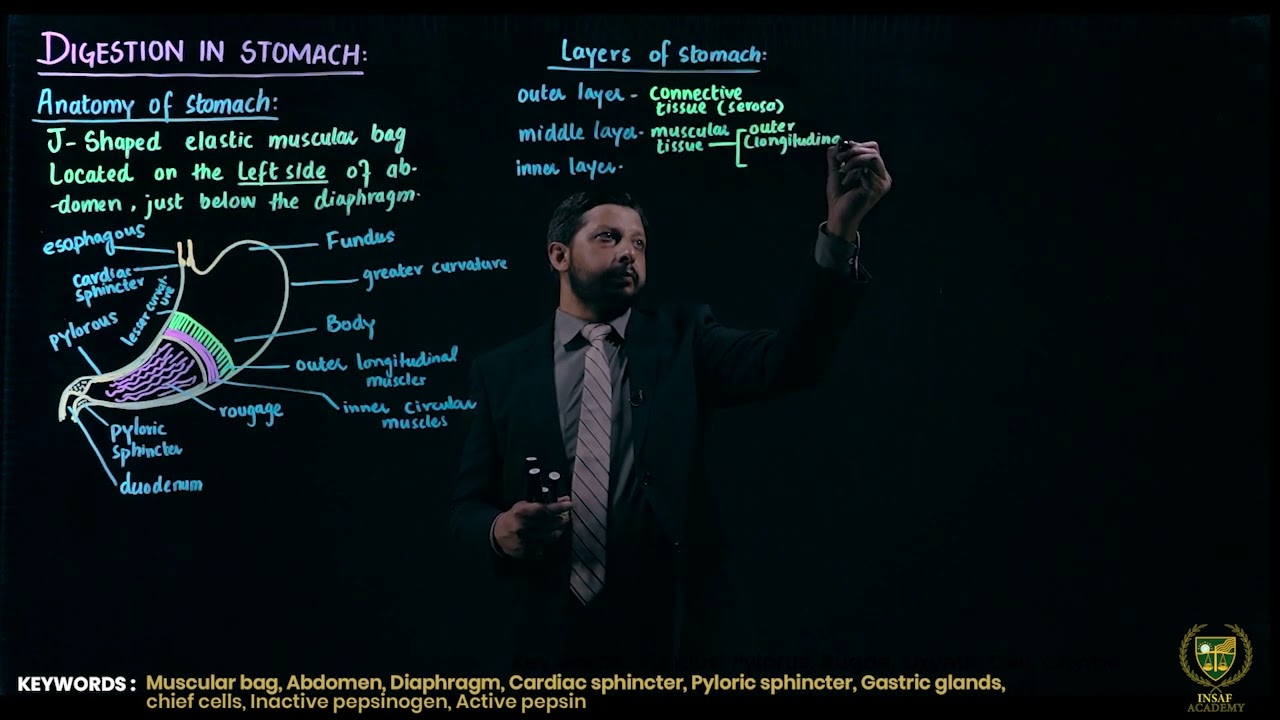 DIGESTION IN STOMACH:
Anatomy of stomach:
J- Shaped elastic muscular bag
Located on the Left side of ab-
-domen, just below the diaphragm.
esophagous
Fundus
cardiac
sphincter
greater curvature
lesser curvat-
ure
pylorous
Body
outer longitudinal
muscles
rougage
inner circular
muscles
pyloric
sphincter
duodenum
Layers of stomach:
outer layer - connective
tissue (serosa)
middle layer - muscular
tissue
outer
(longitudina
inner layer-
KEYWORDS : Muscular bag, Abdomen, Diaphragm, Cardiac sphincter, Pyloric sphincter, Gastric glands,
chief cells, Inactive pepsinogen, Active pepsin
INSAF
ACADEMY